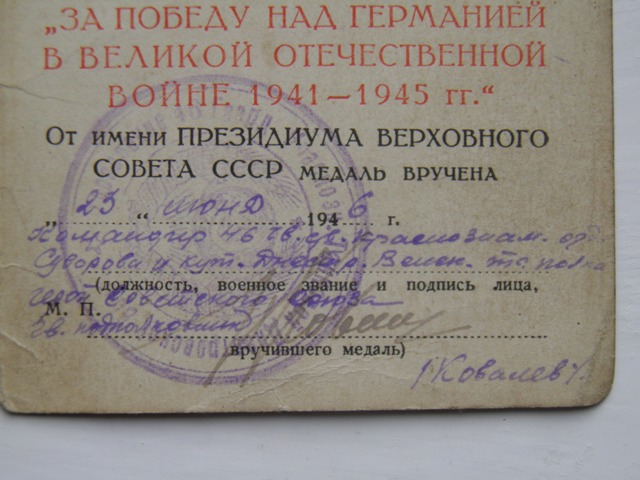 „ЗА ПОБЕДУ НАД ГЕРМАНИЕЙ
В ВЕЛИКОЙ ОТЕЧЕСТВЕННОЙ
ВОЙНЕ 1941—1945 гг.“
От имени ПРЕЗИДИУМА ВЕРХОВНОГО
СОВЕТА СССР МЕДАЛЬ ВРУЧЕНА
„ 23 “ июня 194 6 г.
Командир 46 гв. Краснознам. орд.
Суворова и кут. полка
(должность, военное звание и подпись лица,
герой Советского Союза
М. П.
гв. подполковник
вручившего медаль)
/Ковалев/